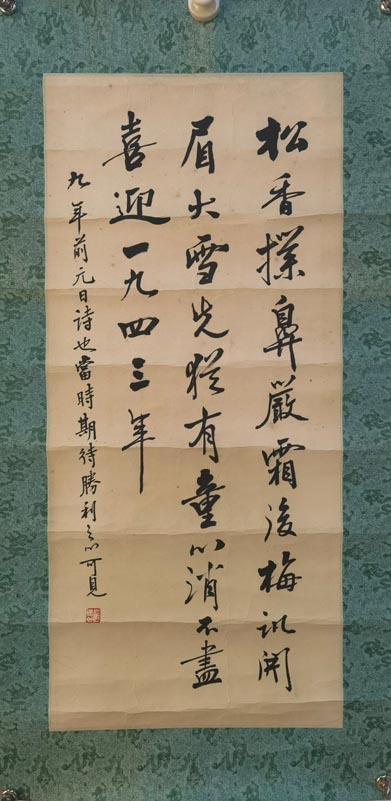 松香撲鼻嚴霜後梅訊開
眉大雪先猶有童心消不盡
喜迎一九四三年
九年前元日詩也當時期待勝利之心可見